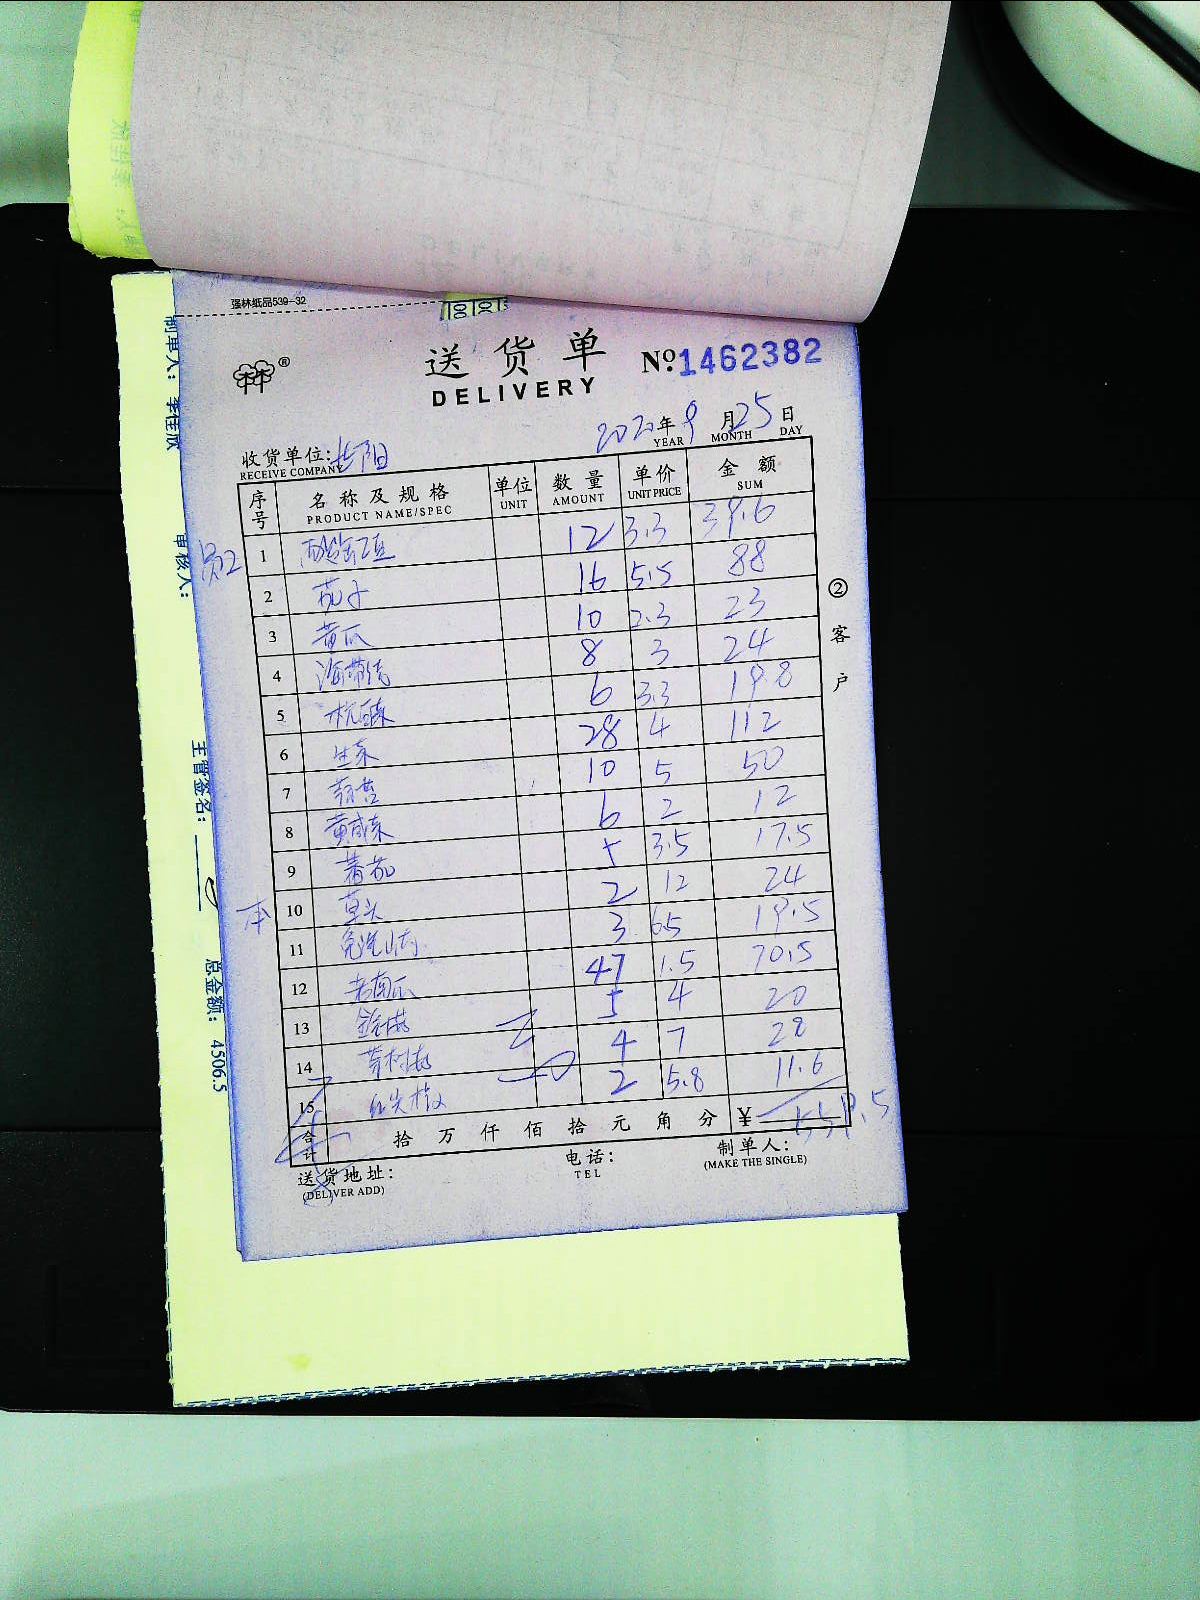 强林纸品539-32
送货单
DELIVERY
№1462382
2020年9月25日
YEAR MONTH DAY
收货单位:
RECEIVE COMPANY
序号 名称及规格 单位 数量 单价 金额
PRODUCT NAME/SPEC UNIT AMOUNT UNIT PRICE SUM
1 12 3.3 39.6
2 茄子 16 5.5 88
3 黄瓜 10 2.3 23
4 海带结 8 3 24
5 杭白菜 6 3.3 19.8
6 生菜 28 4 112
7 10 5 50
8 黄咸菜 6 2 12
9 蕃茄 5 3.5 17.5
10 草头 2 12 24
11 免洗 3 6.5 19.5
12 老南瓜 47 1.5 70.5
13 金针菇 5 4 20
14 茶树菇 4 7 28
15 红尖椒 2 5.8 11.6
合计 拾万仟佰拾元角分 ¥ 559.5
送货地址:
(DELIVER ADD)
电话:
TEL
制单人:
(MAKE THE SINGLE)
②客户
制单人: 李佳欣
审核人:
主管签名:
总金额: 4506.5